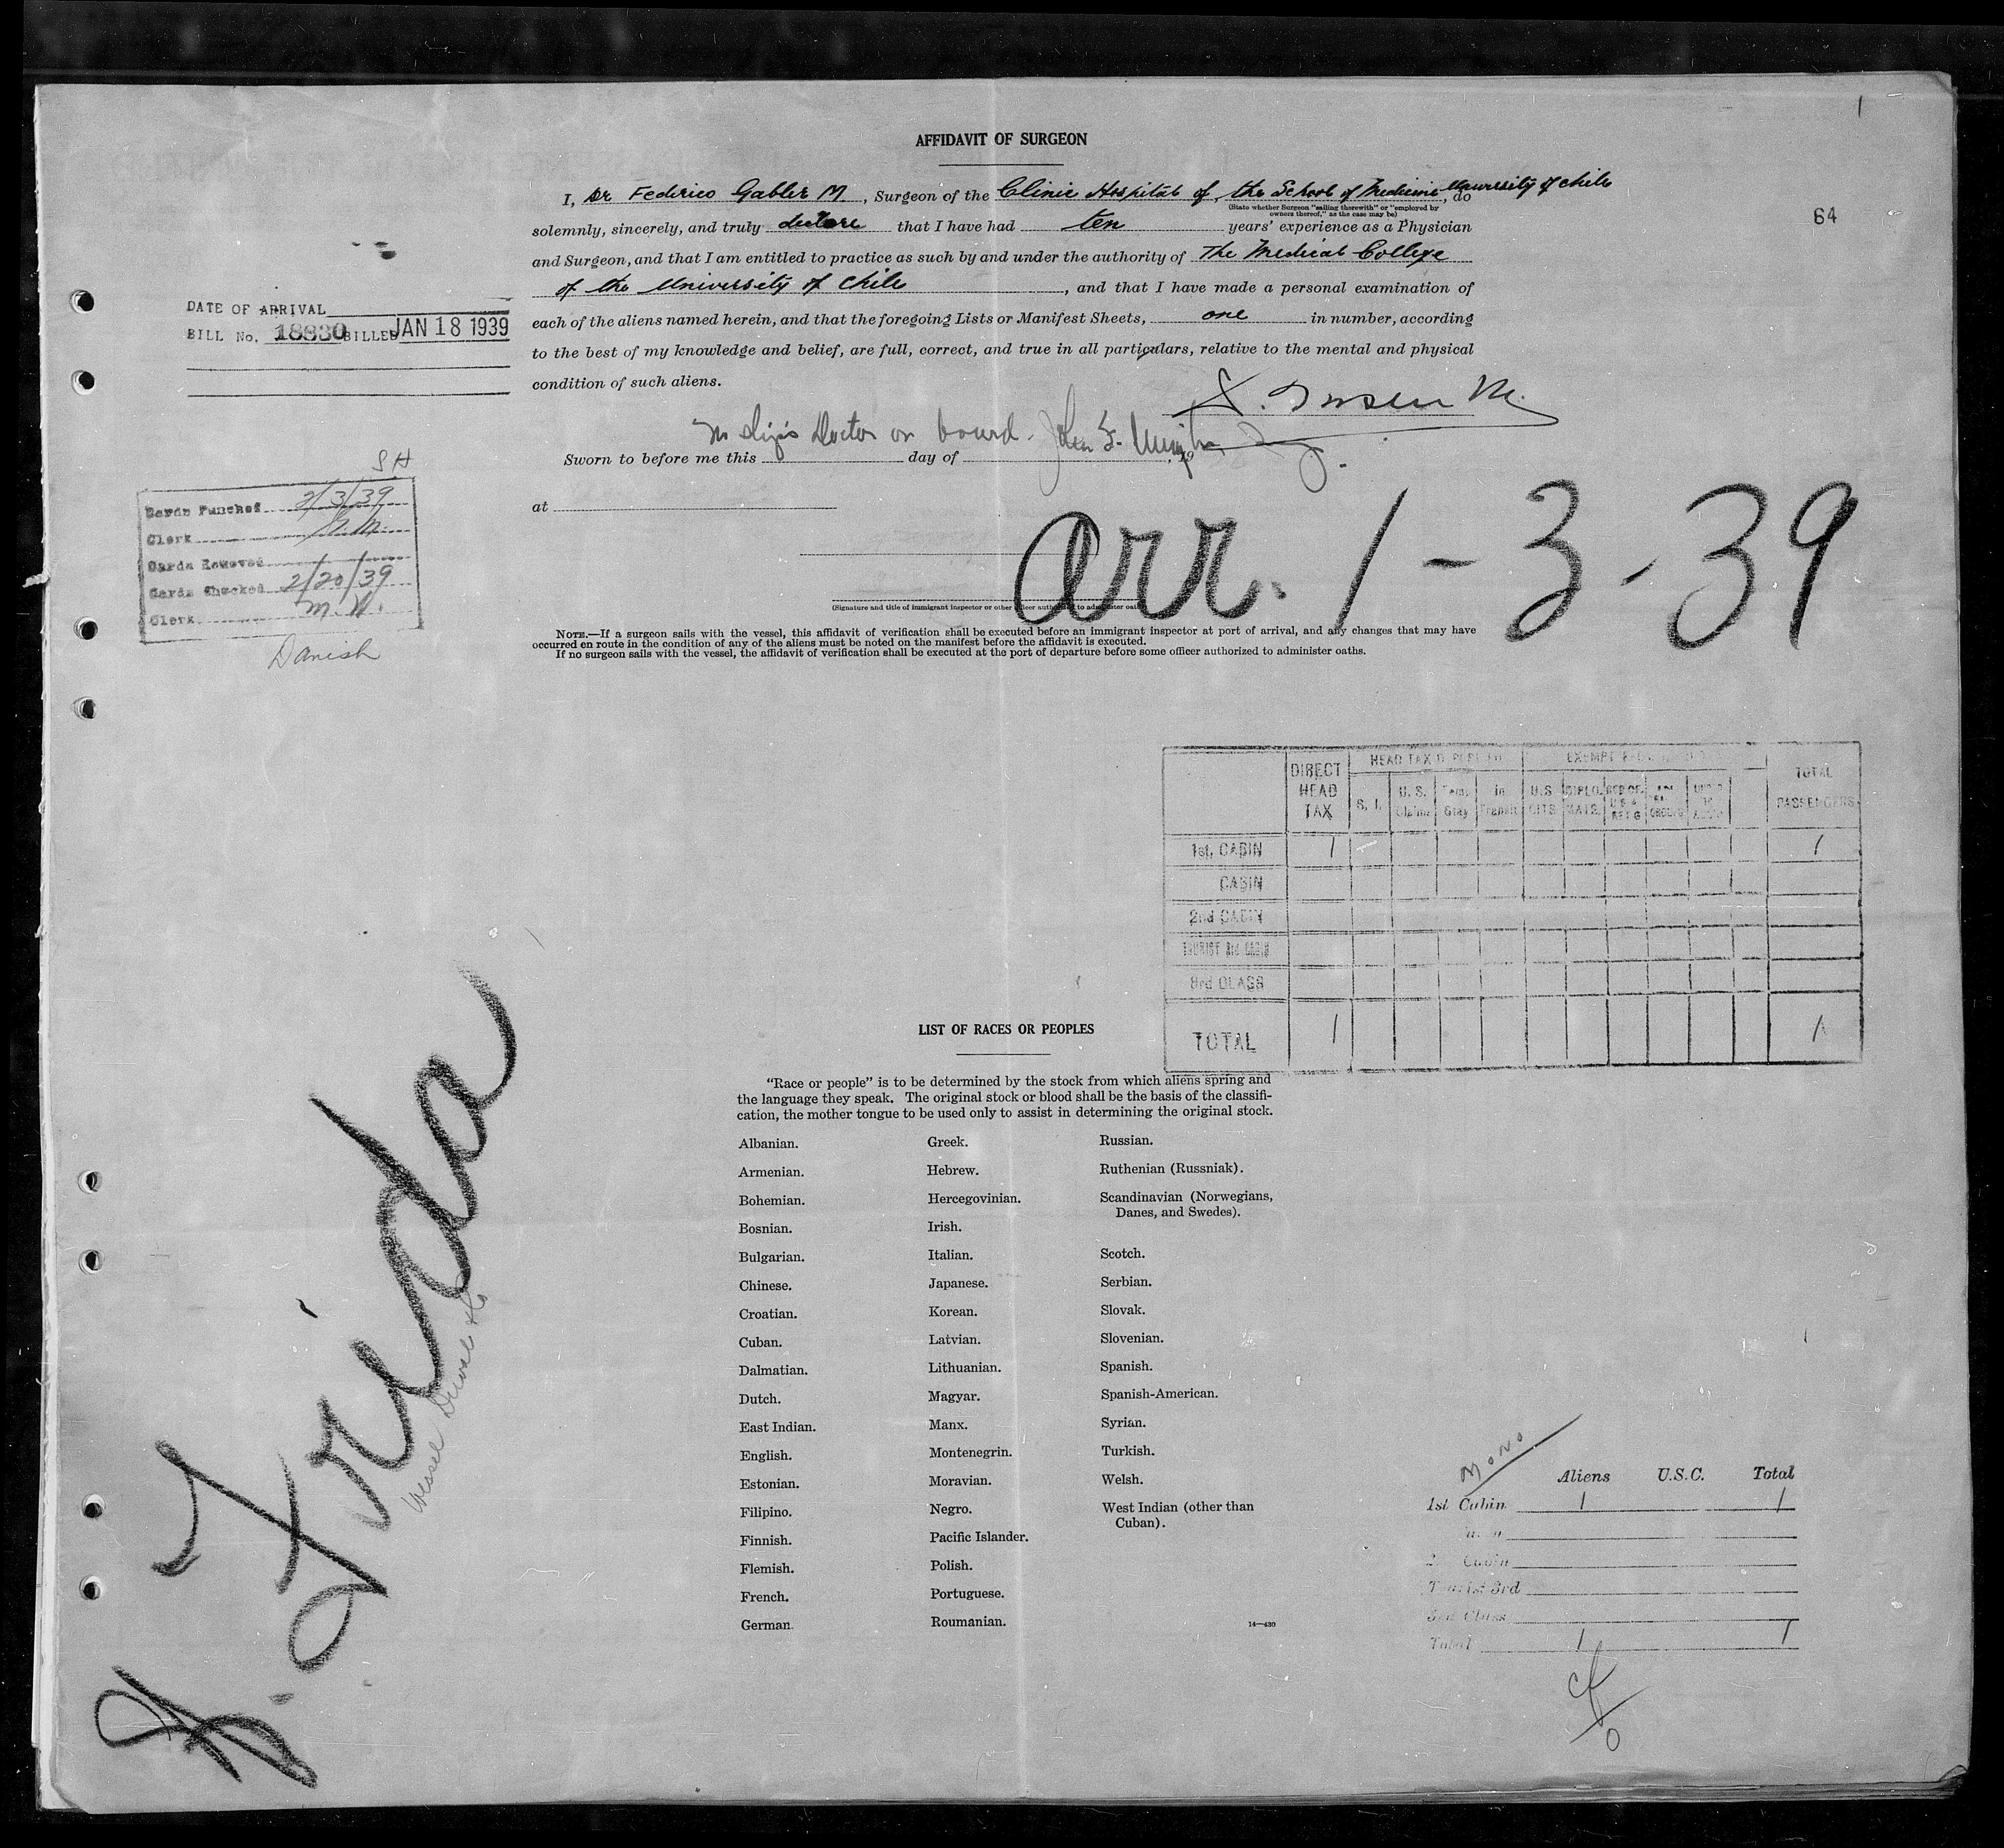 1
AFFIDAVIT OF SURGEON
I, Dr Federico Gabler M., Surgeon of the Clinic Hospital of the School of Medicine University of Chile, do
(State whether Surgeon "sailing therewith" or "employed by
owners thereof," as the case may be)
64
solemnly, sincerely, and truly declare that I have had ten years' experience as a Physician
and Surgeon, and that I am entitled to practice as such by and under the authority of The Medical College
of the University of Chile, and that I have made a personal examination of
each of the aliens named herein, and that the foregoing Lists or Manifest Sheets, one in number, according
to the best of my knowledge and belief, are full, correct, and true in all particulars, relative to the mental and physical
condition of such aliens.
DATE OF ARRIVAL
BILL No. 18830 BILLED JAN 18 1939
No Ship's Doctor on board. John
Sworn to before me this day of , 19
at
arr. 1-3-39
(Signature and title of immigrant inspector or other officer authorized to administer oaths)
SH
Cards Punched 2/3/39
Clerk
Cards Removed
Cards Checked 2/20/39
Clerk M. W.
Danish
NOTE.—If a surgeon sails with the vessel, this affidavit of verification shall be executed before an immigrant inspector at port of arrival, and any changes that may have
occurred en route in the condition of any of the aliens must be noted on the manifest before the affidavit is executed.
If no surgeon sails with the vessel, the affidavit of verification shall be executed at the port of departure before some officer authorized to administer oaths.
DIRECT HEAD TAX
HEAD TAX
S. I.
U. S. Claims
Temp. Stay
In Transit
EXEMPT
U.S. CITS.
DIPLO. MATS.
TOTAL PASSENGERS
1st. CABIN 1 1
CABIN
2nd CABIN
TOURIST 3rd CABIN
3rd CLASS
TOTAL 1 1
LIST OF RACES OR PEOPLES
"Race or people" is to be determined by the stock from which aliens spring and
the language they speak. The original stock or blood shall be the basis of the classifi-
cation, the mother tongue to be used only to assist in determining the original stock.
Albanian.
Armenian.
Bohemian.
Bosnian.
Bulgarian.
Chinese.
Croatian.
Cuban.
Dalmatian.
Dutch.
East Indian.
English.
Estonian.
Filipino.
Finnish.
Flemish.
French.
German.
Greek.
Hebrew.
Hercegovinian.
Irish.
Italian.
Japanese.
Korean.
Latvian.
Lithuanian.
Magyar.
Manx.
Montenegrin.
Moravian.
Negro.
Pacific Islander.
Polish.
Portuguese.
Roumanian.
Russian.
Ruthenian (Russniak).
Scandinavian (Norwegians,
Danes, and Swedes).
Scotch.
Serbian.
Slovak.
Slovenian.
Spanish.
Spanish-American.
Syrian.
Turkish.
Welsh.
West Indian (other than
Cuban).
14—430
Frida
Wessel Duval & Co
Mono
Aliens U.S.C. Total
1st Cabin 1 1
Cabin
2 Cabin
Tourist 3rd
3rd Class
Total 1 1